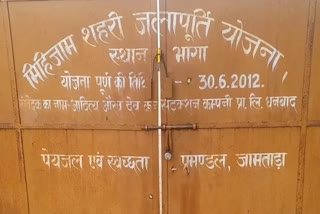 मिहिजाम शहरी जलापूर्ति योजना
स्थान भागा
योजना पूर्ण की तिथि - 30.6.2012.
का नाम-आदित्य औरव देव कन्सट्रक्शन कम्पनी प्रा. लि. धनबाद
पेयजल एवं स्वच्छता प्रमण्डल, जामताड़ा